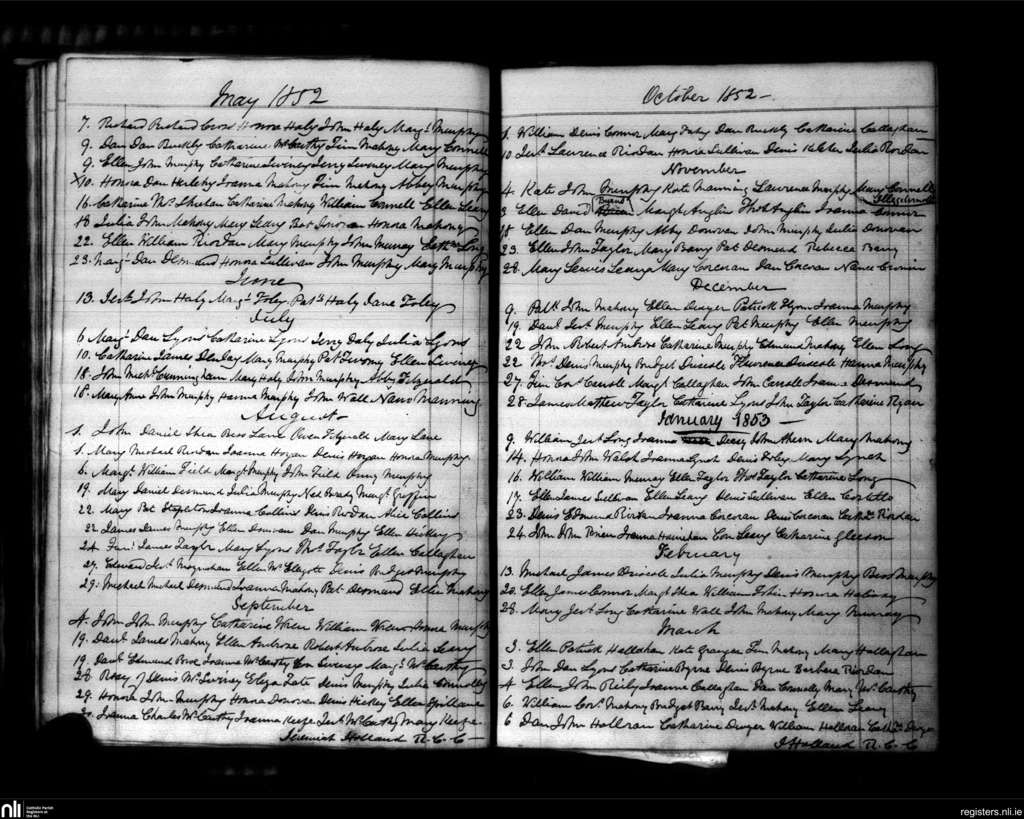 May 1852
7. Richard Richard Cross Honora Haly John Haly Marg.t Murphy
9. Dan Dan Buckly Catharine McCarthy Tim Mahony Mary Connell
9. Ellen John Murphy Catharine Sweney Jerry Sweney Mary Murphy
X10. Honora Dan Herlehy Joanna Mahony Tim Mahony Abbey Murphy
16. Catharine Ms Sheehan Catharine Mahony William Connell Ellen Leary
18 Julia John Mahony Mary Leary Bat Honora Mahony
22. Ellen William Riordan Mary Murphy John Murray Long
23. Marg.t Dan Desmond Honora Sullivan John Murphy Mary Murphy
June
13. Jer.h John Haly Marg.t Foley Pat.k Haly Jane Foley
July
6 Marg.t Dan Lyons Catharine Lyons Jerry Daly Julia Lyons
10. Catharine James Mary Murphy Pat Ellen Sweney
18. John Mich.l Cunningham Mary Haly John Murphy Abby Fitzgerald
18. Mary Anne John Murphy Hanna Murphy John Wall Nano Manning
August
1. John Daniel Shea Bess Lane Owen Fitzgerald Mary Lane
1. Mary Michael Riordan Joanna Hogan Denis Hogan Honora Murphy
6. Marg.t William Field Marg.t Murphy John Field Murphy
19. Mary Daniel Desmond Julia Murphy Ned Brady Marg.t Griffin
22. Mary Pat Stapleton Joanna Collins Denis Riordan Alice Collins
22 James James Murphy Ellen Donovan Dan Murphy Ellen Hickey
24 James Taylor Mary Lyons Tho.s Taylor Ellen Callaghan
27. Edward Jer.h Moynahan Ellen McEligott Denis Bridget Murphy
29. Michael Michael Desmond Joanna Mahony Pat Desmond Ellen Mahony
September
4. John John Murphy Catharine William Joanna Murphy
19. Dan.l James Mahony Ellen Ambrose Robert Ambrose Julia Leary
19. Dan.l Edmund Joanna McCarthy Con Sweney Marg.t McCarthy
28 Denis McSwiney Eliza Tate Denis Murphy Julia Connolly
29. Honora John Murphy Honora Donovan Denis Hickey Ellen Spillane
30. Joanna Charles McCarthy Joanna Keefe Jer.h McCarthy Mary Keefe
Jeremiah Holland R.C.C
October 1852
1. William Denis Connor Mary Dan Buckly Catharine Callaghan
10 Jer.h Laurence Riordan Honora Sullivan Denis Julia Riordan
November
4. Kate John Murphy Kate Manning Lawrence Murphy Mary Connell
Byrne
3 Ellen David Marg.t Anglin Tho.s Anglin Joanna Connor
18 Ellen Dan Murphy Abby Donovan John Murphy Julia Donovan
23. Ellen John Taylor Mary Barry Pat Desmond Rebecca Barry
28. Mary Leary Mary Corcoran Dan Corcoran Nance Cronin
December
9. Pat.k John Mahony Ellen Dwyer Patrick Flynn Joanna Murphy
19. Dan.l Jer.h Murphy Ellen Leary Pat Murphy Ellen Murphy
22 John Robert Ambrose Catharine Murphy Edmund Mahony Ellen Long
22 Denis Murphy Bridget Driscole Florence Driscole Hanna Murphy
27. Tim Con.s Carroll Marg.t Callaghan John Carroll Joanna Desmond
28. James Mathew Taylor Catharine Lyons John Taylor Catharine Ryan
January 1853
9. William Jer.h Long Joanna Deasy John Ahern Mary Mahony
14. Honora John Walsh Joanna Lynch Denis Mary Lynch
16. William William Murray Ellen Taylor Tho.s Taylor Catharine Long
17. Ellen James Sullivan Ellen Leary Denis Sullivan Ellen Costello
23. Denis Edmund Riordan Joanna Corcoran Denis Corcoran Cath.e Riordan
24. John John Joanna Con Leary Catharine Gleeson
February
13. Michael James Driscole Julia Murphy Denis Murphy Bess Murphy
20. Ellen James Connor Marg.t Shea William Honora
28. Mary Jer.h Long Catharine Wall John Mahony Mary Murray
March
3. Ellen Patrick Hallahan Kate Tim Mahony Mary Hallahan
3. John Dan Lyons Catharine Byrne Denis Byrne Barbara Riordan
4. Ellen John Riely Joanna Callaghan Dan Connolly Mary McCarthy
6. William Cor.s Mahony Bridget Barry Jer.h Mahony Ellen Leary
6 Dan John Holloran Catharine Dwyer William Holloran Cath.e Dwyer
J Holland R.C.C
nli
Catholic Parish
Registers at
the NLI
registers.nli.ie